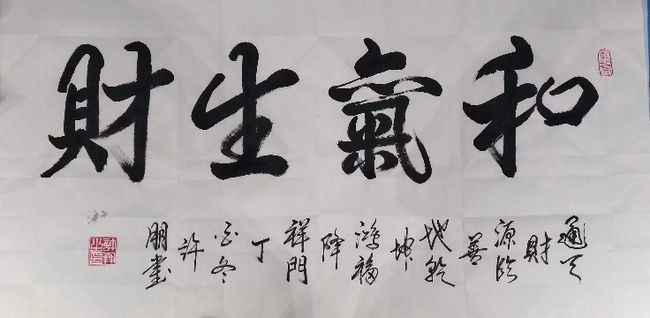 和氣生財
通天
財
源臨
善
地乾
坤
鴻福
降
祥門
丁
酉冬
許
朋書